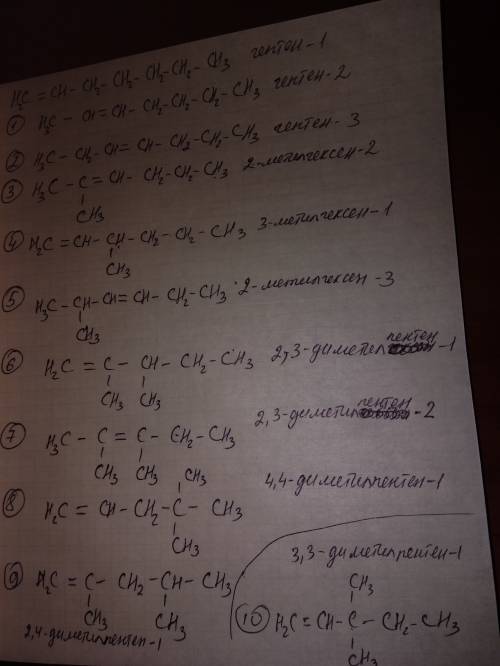 H₂C = CH - CH₂ - CH₂ - CH₂ - CH₂ - CH3 гептен-1
① H₃C - CH = CH - CH₂ - CH₂ - CH₂ - CH3 гептен-2
② H₃C - CH₂ - CH = CH - CH₂ - CH₂ - CH3 гептен-3
③ H₃C - C = CH - CH₂ - CH₂ - CH3 2-метилгексен-2
CH3
④ H₂C = CH - CH - CH₂ - CH₂ - CH3 3-метилгексен-1
CH3
⑤ H₃C - CH - CH = CH - CH₂ - CH3 2-метилгексен-3
CH3
⑥ H₂C = C - CH - CH₂ - CH3 2,3-диметилпентен-1
CH3 CH3
⑦ H₃C - C = C - CH₂ - CH3 2,3-диметилпентен-2
CH3 CH3
CH3
⑧ H₂C = CH - CH₂ - C - CH3 4,4-диметилпентен-1
CH3
⑨ H₂C = C - CH₂ - CH - CH3
CH3 CH3
2,4-диметилпентен-1
3,3-диметилпентен-1
CH3
⑩ H₂C = CH - C - CH₂ - CH3
CH3